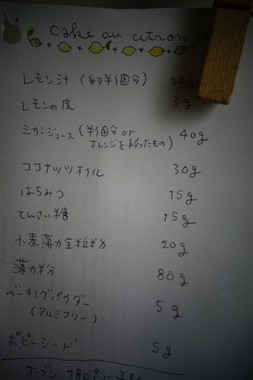 cake au citron
レモン汁 (約半個分) 20g
レモンの皮 3g
ミカンジュース (半個分 or
オレンジを絞ったもの) 40g
ココナッツオイル 30g
はちみつ 15g
てんさい糖 15g
小麦薄力全粒粉 20g
薄力粉 80g
ベーキングパウダー 5g
(アルミフリー)
ポピーシード 5g
オーブン 180℃